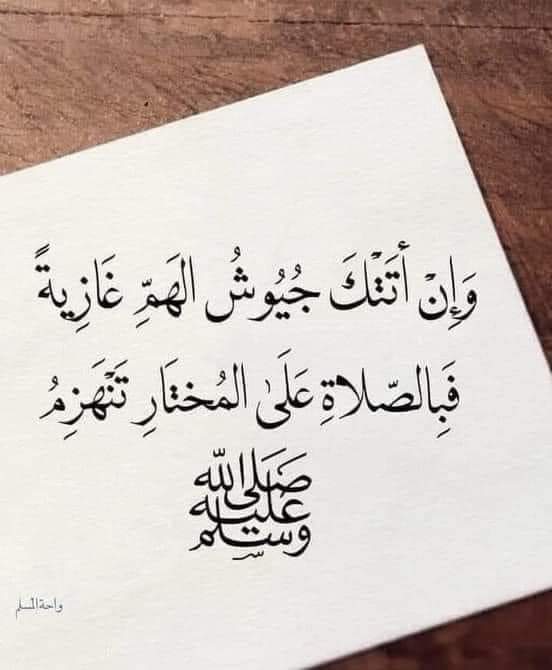 وَإِنْ أَتَتْكَ جُيُوشُ الهَمِّ غَازِيةً
فَبِالصّلاةِ عَلَىٰ المُختَارِ تَنْهَزِمُ
صَلى الله
عليه
وسلم
واحة المسلم